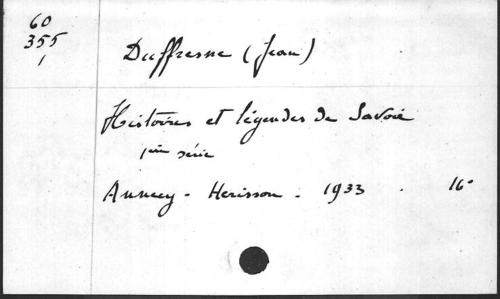 60
355
1
Duffresne (Jean)
Histoires et légendes de Savoie
1ère série
Annecy - Herisson - 1933 . 16°